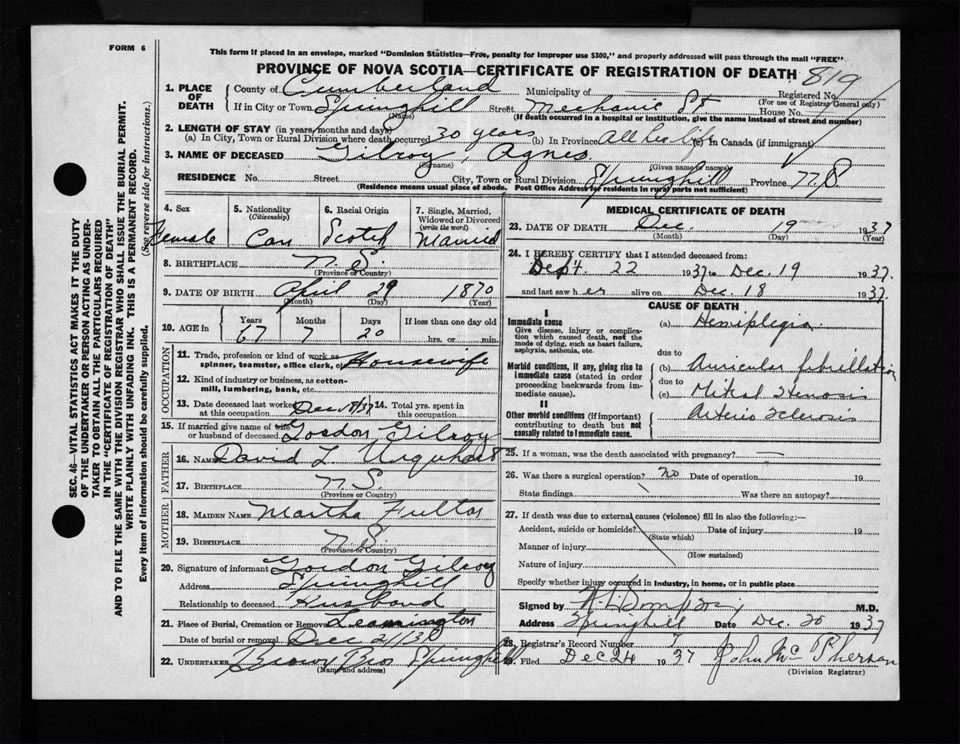 FORM 6
This form if placed in an envelope, marked "Dominion Statistics—Free, penalty for improper use $300," and properly addressed will pass through the mail "FREE"
PROVINCE OF NOVA SCOTIA—CERTIFICATE OF REGISTRATION OF DEATH 819
1. PLACE OF DEATH
County of Cumberland Municipality of Registered No.
(For use of Registrar General only)
If in City or Town Springhill Street Mechanic St House No.
(Name) (If death occurred in a hospital or institution, give the name instead of street and number)
2. LENGTH OF STAY (in years, months and days)
(a) In City, Town or Rural Division where death occurred 30 years (b) In Province All her life (c) In Canada (if immigrant)
3. NAME OF DECEASED Gilroy, Agnes
(Surname) (Given name or names)
RESIDENCE No. Street City, Town or Rural Division Springhill Province N.S
(Residence means usual place of abode. Post Office Address for residents in rural parts not sufficient)
4. Sex Female
5. Nationality (Citizenship) Can
6. Racial Origin Scotch
7. Single, Married, Widowed or Divorced (write the word) Married
8. BIRTHPLACE N.S.
(Province or Country)
9. DATE OF BIRTH April 29 1870
(Month) (Day) (Year)
10. AGE in Years Months Days If less than one day old
67 7 20 hrs. or min.
OCCUPATION
11. Trade, profession or kind of work as spinner, teamster, office clerk, etc. Housewife
12. Kind of industry or business, as cotton-mill, lumbering, bank, etc.
13. Date deceased last worked at this occupation Dec 18/37 14. Total yrs. spent in this occupation.
15. If married give name of wife or husband of deceased Gordon Gilroy
FATHER
16. NAME David L Urquhart
17. BIRTHPLACE N.S.
(Province or Country)
MOTHER
18. MAIDEN NAME Martha Fulton
19. BIRTHPLACE N.S.
(Province or Country)
20. Signature of informant Gordon Gilroy
Address Springhill
Relationship to deceased Husband
21. Place of Burial, Cremation or Removal Leamington
Date of burial or removal Dec 21/37
22. UNDERTAKER Brown Bros Springhill
(Name and address)
MEDICAL CERTIFICATE OF DEATH
23. DATE OF DEATH Dec. 19 1937
(Month) (Day) (Year)
24. I HEREBY CERTIFY that I attended deceased from:
Sept. 22 1937 to Dec. 19 1937.
and last saw her alive on Dec. 18 1937
CAUSE OF DEATH
I
Immediate cause
Give disease, injury or complication which caused death, not the mode of dying, such as heart failure, asphyxia, asthenia, etc.
(a) Hemiplegia
due to
Morbid conditions, if any, giving rise to immediate cause (stated in order proceeding backwards from immediate cause).
(b) Auricular fabrillation
due to
(c) Mitral Stenosis
II
Other morbid conditions (if important) contributing to death but not causally related to immediate cause.
Arterio Sclerosis
25. If a woman, was the death associated with pregnancy?
26. Was there a surgical operation? No Date of operation 19
State findings Was there an autopsy?
27. If death was due to external causes (violence) fill in also the following:—
Accident, suicide or homicide? Date of injury 19
(State which)
Manner of injury
(How sustained)
Nature of injury
Specify whether injury occurred in industry, in home, or in public place
Signed by M.D.
Address Springhill Date Dec. 20 1937
28. Registrar's Record Number
29. Filed Dec 24 1937 John McPherson
(Division Registrar)
SEC. 46—VITAL STATISTICS ACT MAKES IT THE DUTY
OF THE UNDERTAKER OR PERSON ACTING AS UNDER-
TAKER TO OBTAIN ALL THE PARTICULARS REQUIRED
IN THE "CERTIFICATE OF REGISTRATION OF DEATH"
AND TO FILE THE SAME WITH THE DIVISION REGISTRAR WHO SHALL ISSUE THE BURIAL PERMIT.
WRITE PLAINLY WITH UNFADING INK. THIS IS A PERMANENT RECORD.
Every item of information should be carefully supplied. (See reverse side for instructions.)